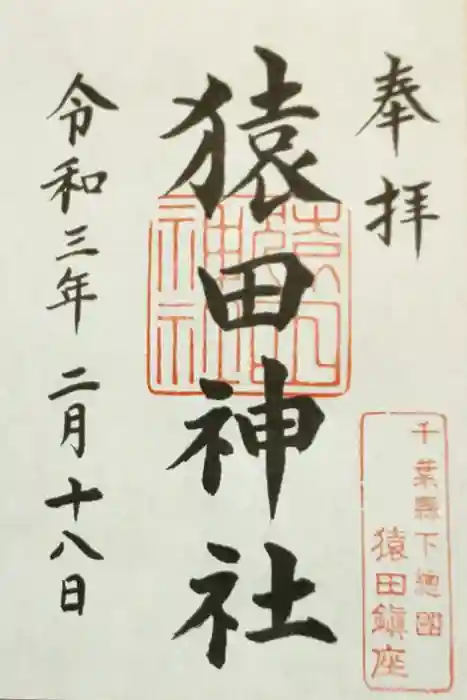 奉拝
猿田神社
猿田神社
令和三年二月十八日
千葉縣下總国
猿田鎮座